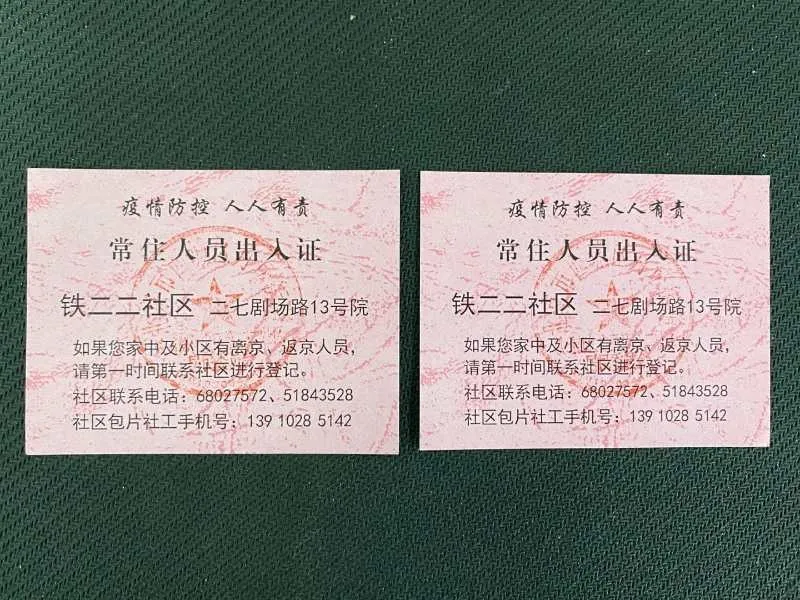 疫情防控 人人有责
常住人员出入证
铁二二社区 二七剧场路13号院
如果您家中及小区有离京、返京人员，
请第一时间联系社区进行登记。
社区联系电话：68027572、51843528
社区包片社工手机号：139 1028 5142
疫情防控 人人有责
常住人员出入证
铁二二社区 二七剧场路13号院
如果您家中及小区有离京、返京人员，
请第一时间联系社区进行登记。
社区联系电话：68027572、51843528
社区包片社工手机号：139 1028 5142